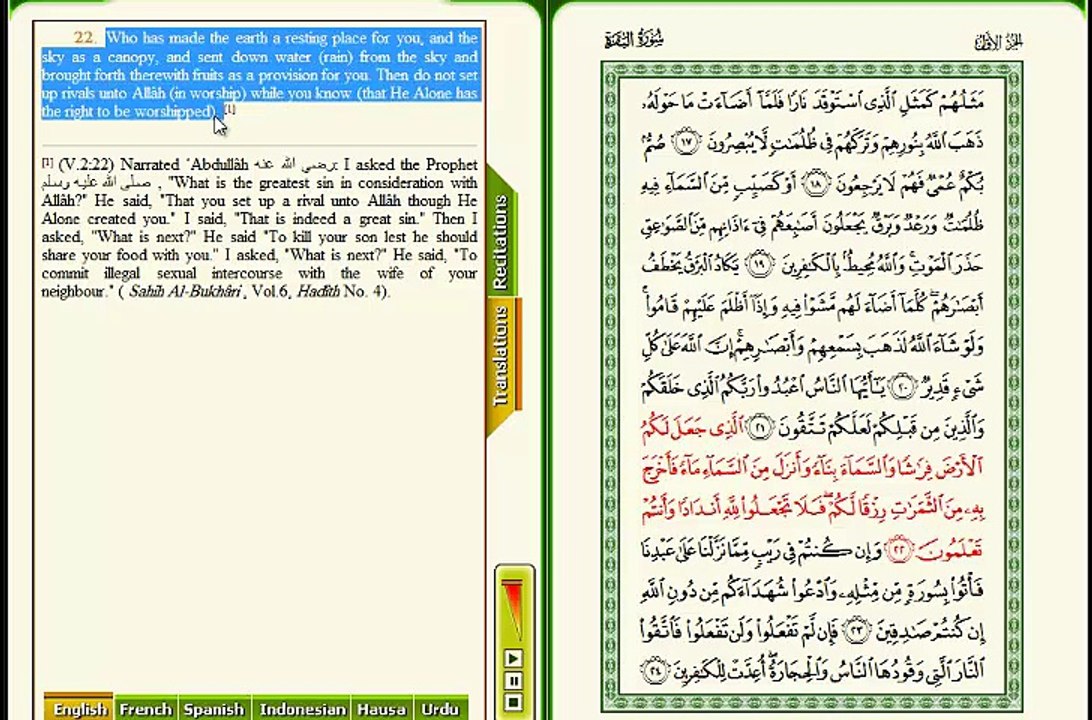 22. Who has made the earth a resting place for you, and the
sky as a canopy, and sent down water (rain) from the sky and
brought forth therewith fruits as a provision for you. Then do not set
up rivals unto Allâh (in worship) while you know (that He Alone has
the right to be worshipped). [1]
[1] (V.2:22) Narrated 'Abdullâh رضي الله عنه: I asked the Prophet
صلى الله عليه وسلم , "What is the greatest sin in consideration with
Allâh?" He said, "That you set up a rival unto Allâh though He
Alone created you." I said, "That is indeed a great sin." Then I
asked, "What is next?" He said "To kill your son lest he should
share your food with you." I asked, "What is next?" He said, "To
commit illegal sexual intercourse with the wife of your
neighbour." ( Sahih Al-Bukhâri, Vol.6, Hadîth No. 4).
Recitations
Translations
English French Spanish Indonesian Hausa Urdu
سُورَةُ البَقَرَةِ
الجزء الأول
مَثَلُهُمْ كَمَثَلِ ٱلَّذِى ٱسْتَوْقَدَ نَارًا فَلَمَّآ أَضَآءَتْ مَا حَوْلَهُۥ
ذَهَبَ ٱللَّهُ بِنُورِهِمْ وَتَرَكَهُمْ فِى ظُلُمَـٰتٍ لَّا يُبْصِرُونَ ١٧ صُمٌّۢ
بُكْمٌ عُمْىٌ فَهُمْ لَا يَرْجِعُونَ ١٨ أَوْ كَصَيِّبٍ مِّنَ ٱلسَّمَآءِ فِيهِ
ظُلُمَـٰتٌ وَرَعْدٌ وَبَرْقٌ يَجْعَلُونَ أَصَـٰبِعَهُمْ فِىٓ ءَاذَانِهِم مِّنَ ٱلصَّوَٰعِقِ
حَذَرَ ٱلْمَوْتِ وَٱللَّهُ مُحِيطٌۢ بِٱلْكَـٰفِرِينَ ١٩ يَكَادُ ٱلْبَرْقُ يَخْطَفُ
أَبْصَـٰرَهُمْ كُلَّمَآ أَضَآءَ لَهُم مَّشَوْا۟ فِيهِ وَإِذَآ أَظْلَمَ عَلَيْهِمْ قَامُوا۟
وَلَوْ شَآءَ ٱللَّهُ لَذَهَبَ بِسَمْعِهِمْ وَأَبْصَـٰرِهِمْ إِنَّ ٱللَّهَ عَلَىٰ كُلِّ
شَىْءٍ قَدِيرٌ ٢٠ يَـٰٓأَيُّهَا ٱلنَّاسُ ٱعْبُدُوا۟ رَبَّكُمُ ٱلَّذِى خَلَقَكُمْ
وَٱلَّذِينَ مِن قَبْلِكُمْ لَعَلَّكُمْ تَتَّقُونَ ٢١ ٱلَّذِى جَعَلَ لَكُمُ
ٱلْأَرْضَ فِرَٰشًا وَٱلسَّمَآءَ بِنَآءً وَأَنزَلَ مِنَ ٱلسَّمَآءِ مَآءً فَأَخْرَجَ
بِهِۦ مِنَ ٱلثَّمَرَٰتِ رِزْقًا لَّكُمْ فَلَا تَجْعَلُوا۟ لِلَّهِ أَندَادًا وَأَنتُمْ
تَعْلَمُونَ ٢٢ وَإِن كُنتُمْ فِى رَيْبٍ مِّمَّا نَزَّلْنَا عَلَىٰ عَبْدِنَا
فَأْتُوا۟ بِسُورَةٍ مِّن مِّثْلِهِۦ وَٱدْعُوا۟ شُهَدَآءَكُم مِّن دُونِ ٱللَّهِ
إِن كُنتُمْ صَـٰدِقِينَ ٢٣ فَإِن لَّمْ تَفْعَلُوا۟ وَلَن تَفْعَلُوا۟ فَٱتَّقُوا۟
ٱلنَّارَ ٱلَّتِى وَقُودُهَا ٱلنَّاسُ وَٱلْحِجَارَةُ أُعِدَّتْ لِلْكَـٰفِرِينَ ٢٤